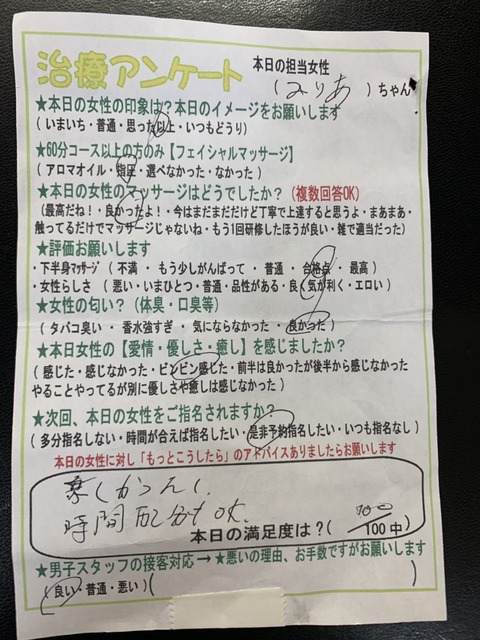 治療アンケート
本日の担当女性
(みりあ)ちゃん
★本日の女性の印象は?本日のイメージをお願いします
(いまいち・普通・思った以上・いつもどうり)
★60分コース以上の方のみ【フェイシャルマッサージ】
(アロマオイル・指圧・選べなかった・なかった)
★本日の女性のマッサージはどうでしたか?(複数回答OK)
(最高だね!・良かったよ!・今はまだまだだけど丁寧で上達すると思うよ・まあまあ・
触ってるだけでマッサージじゃないね・もう1回研修したほうが良い・雑で適当だった)
★評価お願いします
・下半身マッサージ(不満・もう少しがんばって・普通・合格点・最高)
・女性らしさ(悪い・いまひとつ・普通・品性がある・良く気が利く・エロい)
★女性の匂い?(体臭・口臭等)
(タバコ臭い・香水強すぎ・気にならなかった・良かった)
★本日女性の【愛情・優しさ・癒し】を感じましたか?
(感じた・感じなかった・ビンビン感じた・前半は良かったが後半から感じなかった
やることやってるが別に優しさや癒しは感じなかった)
★次回、本日の女性をご指名されますか?
(多分指名しない・時間が合えば指名したい・是非予約指名したい・いつも指名なし)
本日の女性に対し「もっとこうしたら」のアドバイスありましたらお願いします
時間配分もOK.
本日の満足度は?(100/100中)
★男子スタッフの接客対応→★悪いの理由、お手数ですがお願いします
(良い・普通・悪い)( )